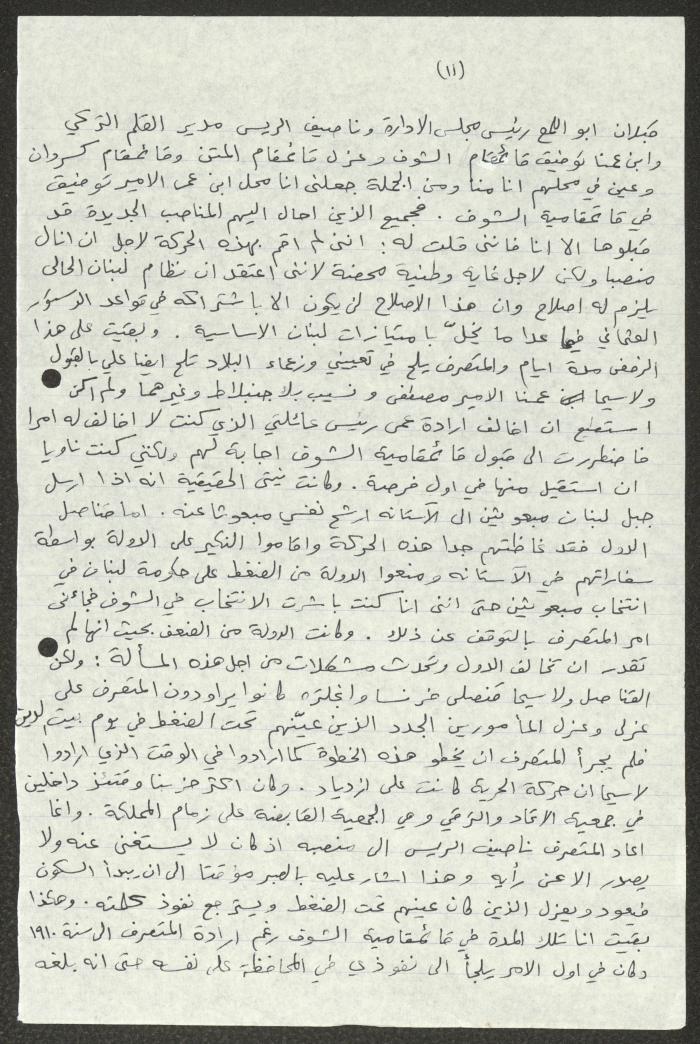 (١١)
قبلان ابو اللمع رئيس مجلس الادارة وناصيف الريس مدير القلم التركي
وابن عمنا توفيق قائمقام الشوف وعزل قائمقام المتن وقائمقام كسروان
وعين في محلهم اناسا ومن الجملة جعلني انا محل ابن عمي الامير توفيق
في قائمقامية الشوف . فجميع الذين احال اليهم المناصب الجديدة قد
قبلوها الا انا فانني قلت له : انني لم اقم بهذه الحركة لاجل ان انال
منصبا ولكن لاجل غاية وطنية محضة لانني اعتقد ان نظام لبنان الحالي
يلزم له اصلاح وان هذا الاصلاح لن يكون الا باشتراكه في قواعد الدستور
العثماني فيما عدا ما يخلّ بامتيازات لبنان الاساسية . وبقيت على هذا
الرفض مدة ايام والمتصرف يلح في تعييني وزعماء البلاد تلح ايضا علي بالقبول
ولاسيما عمنا الامير مصطفى و نسيب بك جنبلاط وغيرهما ولم اكن
استطيع ان اخالف ارادة عمي رئيس عائلتي الذي كنت لا اخالف له امرا
فاضطررت الى قبول قائمقامية الشوف اجابة لهم ولكنني كنت ناويا
ان استقيل منها في اول فرصة . وكانت نيتي الحقيقية انه اذا ارسل
جبل لبنان مبعوثين الى الآستانه ارشح نفسي مبعوثا عنه . اما قناصل
الدول فقد غاظتهم جدا هذه الحركة واقاموا النكير على الدولة بواسطة
سفاراتهم في الآستانه ومنعوا الدولة من الضغط على حكومة لبنان في
انتخاب مبعوثين حتى انني انا كنت باشرت الانتخاب في الشوف فجاءني
امر المتصرف بالتوقف عن ذلك . وكانت الدولة من الضعف بحيث انها لم
تقدر ان تخالف الدول وتحدث مشكلات من اجل هذه المسألة : ولكن
القناصل ولاسيما قنصلي فرنسا وانجلتره كانوا يراودون المتصرف على
عزلي وعزل المأمورين الجدد الذين عيّنهم تحت الضغط في يوم بيت الدين
فلم يجرأ المتصرف ان يخطو هذه الخطوة كما ارادوا في الوقت الذي ارادوا
لاسيما ان حركة الحرية كانت على ازدياد . وكان اكثر حزبنا وقتئذ داخلين
في جمعية الاتحاد والترقي وهي الجمعية القابضة على زمام المملكة . وانما
اعاد المتصرف ناصيف الريس الى منصبه اذ كان لا يستغنى عنه ولا
يصدر الا عن رأيه وهذا اشار عليه بالصبر مؤقتا الى ان يبدأ السكون
فيعود ويعزل الذين كان عينهم تحت الضغط ويسترجع نفوذ كلمته . وهكذا
بقيت انا تلك المدة في قائمقامية الشوف رغم ارادة المتصرف الى سنة ١٩١٠
وكان في اول الامر يلجأ الى نفوذي في المحافظة على نفسه حتى انه بلغه